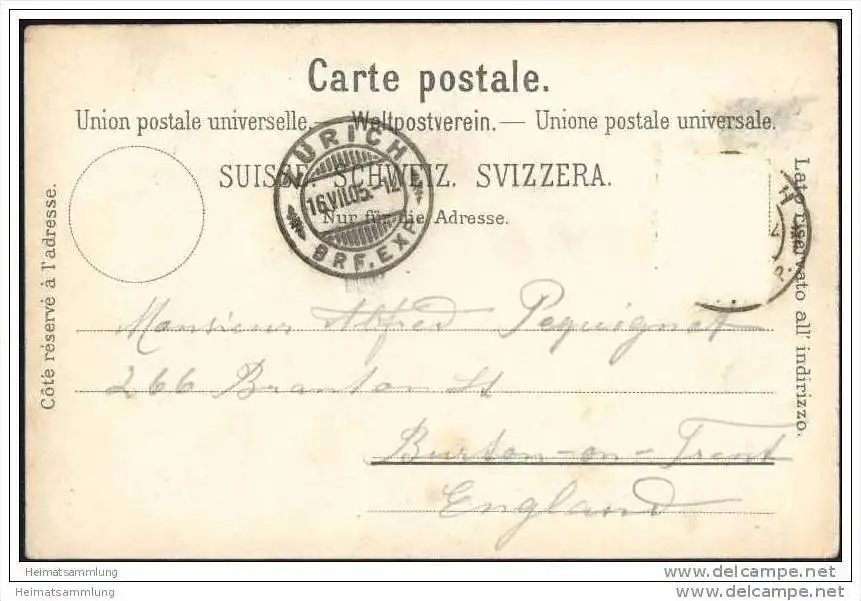 Carte postale.
Union postale universelle. — Weltpostverein. — Unione postale universale.
SUISSE. SCHWEIZ. SVIZZERA.
Nur für die Adresse.
ZÜRICH
16.VII.05.-12
BRF. EXP.
Côté réservé à l'adresse.
Lato riservato all' indirizzo.
Monsieur Alfred Pequignot
266 Branston St
Burton-on-Trent
England
Heimatsammlung
Heimatsammlung
www.delcampe.net
www.delcampe.net